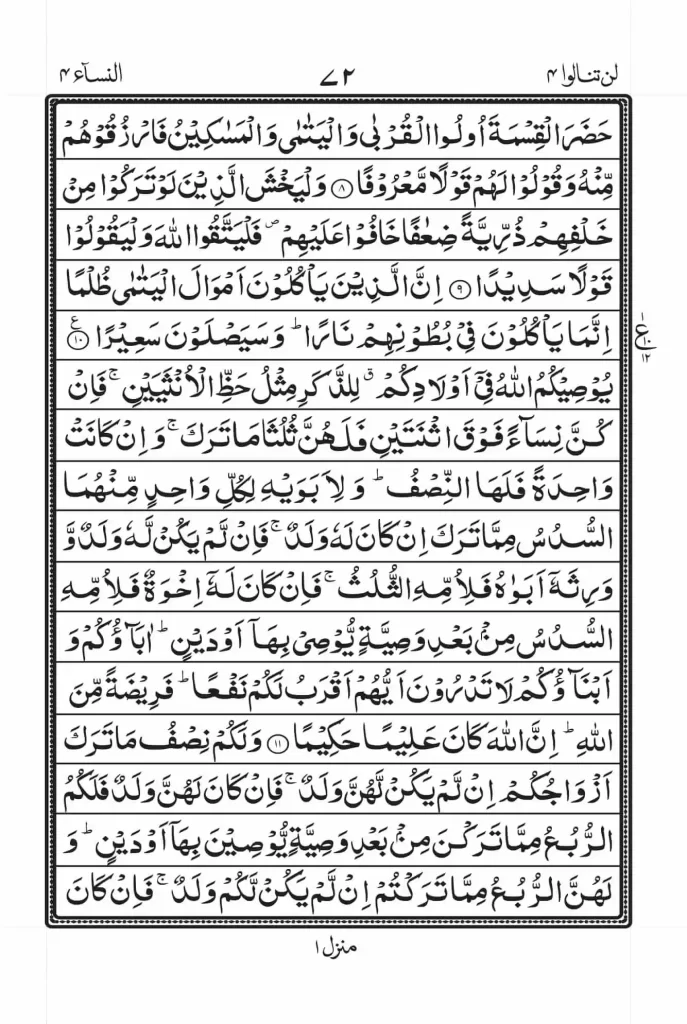 لن تنالوا ۴
۷۲
النسآء ۴
حَضَرَ الْقِسْمَةَ اُولُوا الْقُرْبٰى وَالْيَتٰمٰى وَالْمَسٰكِيْنُ فَارْزُقُوْهُمْ
مِّنْهُ وَقُوْلُوْا لَهُمْ قَوْلًا مَّعْرُوْفًا ۝۸ وَلْيَخْشَ الَّذِيْنَ لَوْ تَرَكُوْا مِنْ
خَلْفِهِمْ ذُرِّيَّةً ضِعٰفًا خَافُوْا عَلَيْهِمْ ۪ فَلْيَتَّقُوا اللّٰهَ وَلْيَقُوْلُوْا
قَوْلًا سَدِيْدًا ۝۹ اِنَّ الَّذِيْنَ يَاْكُلُوْنَ اَمْوَالَ الْيَتٰمٰى ظُلْمًا
اِنَّمَا يَاْكُلُوْنَ فِيْ بُطُوْنِهِمْ نَارًا ؕ وَسَيَصْلَوْنَ سَعِيْرًا ۝۱۰ ع
۱
ع ۱۰
۱۲
يُوْصِيْكُمُ اللّٰهُ فِيْۤ اَوْلَادِكُمْ ۗ لِلذَّكَرِ مِثْلُ حَظِّ الْاُنْثَيَيْنِ ۚ فَاِنْ
كُنَّ نِسَآءً فَوْقَ اثْنَتَيْنِ فَلَهُنَّ ثُلُثَا مَا تَرَكَ ۚ وَاِنْ كَانَتْ
وَاحِدَةً فَلَهَا النِّصْفُ ؕ وَلِاَبَوَيْهِ لِكُلِّ وَاحِدٍ مِّنْهُمَا
السُّدُسُ مِمَّا تَرَكَ اِنْ كَانَ لَهٗ وَلَدٌ ۚ فَاِنْ لَّمْ يَكُنْ لَّهٗ وَلَدٌ وَّ
وَرِثَهٗۤ اَبَوٰهُ فَلِاُمِّهِ الثُّلُثُ ۚ فَاِنْ كَانَ لَهٗۤ اِخْوَةٌ فَلِاُمِّهِ
السُّدُسُ مِنْۢ بَعْدِ وَصِيَّةٍ يُّوْصِيْ بِهَاۤ اَوْ دَيْنٍ ؕ اٰبَآؤُكُمْ وَ
اَبْنَآؤُكُمْ لَا تَدْرُوْنَ اَيُّهُمْ اَقْرَبُ لَكُمْ نَفْعًا ؕ فَرِيْضَةً مِّنَ
اللّٰهِ ؕ اِنَّ اللّٰهَ كَانَ عَلِيْمًا حَكِيْمًا ۝۱۱ وَلَكُمْ نِصْفُ مَا تَرَكَ
اَزْوَاجُكُمْ اِنْ لَّمْ يَكُنْ لَّهُنَّ وَلَدٌ ۚ فَاِنْ كَانَ لَهُنَّ وَلَدٌ فَلَكُمُ
الرُّبُعُ مِمَّا تَرَكْنَ مِنْۢ بَعْدِ وَصِيَّةٍ يُّوْصِيْنَ بِهَاۤ اَوْ دَيْنٍ ؕ وَ
لَهُنَّ الرُّبُعُ مِمَّا تَرَكْتُمْ اِنْ لَّمْ يَكُنْ لَّكُمْ وَلَدٌ ۚ فَاِنْ كَانَ
منزل ۱